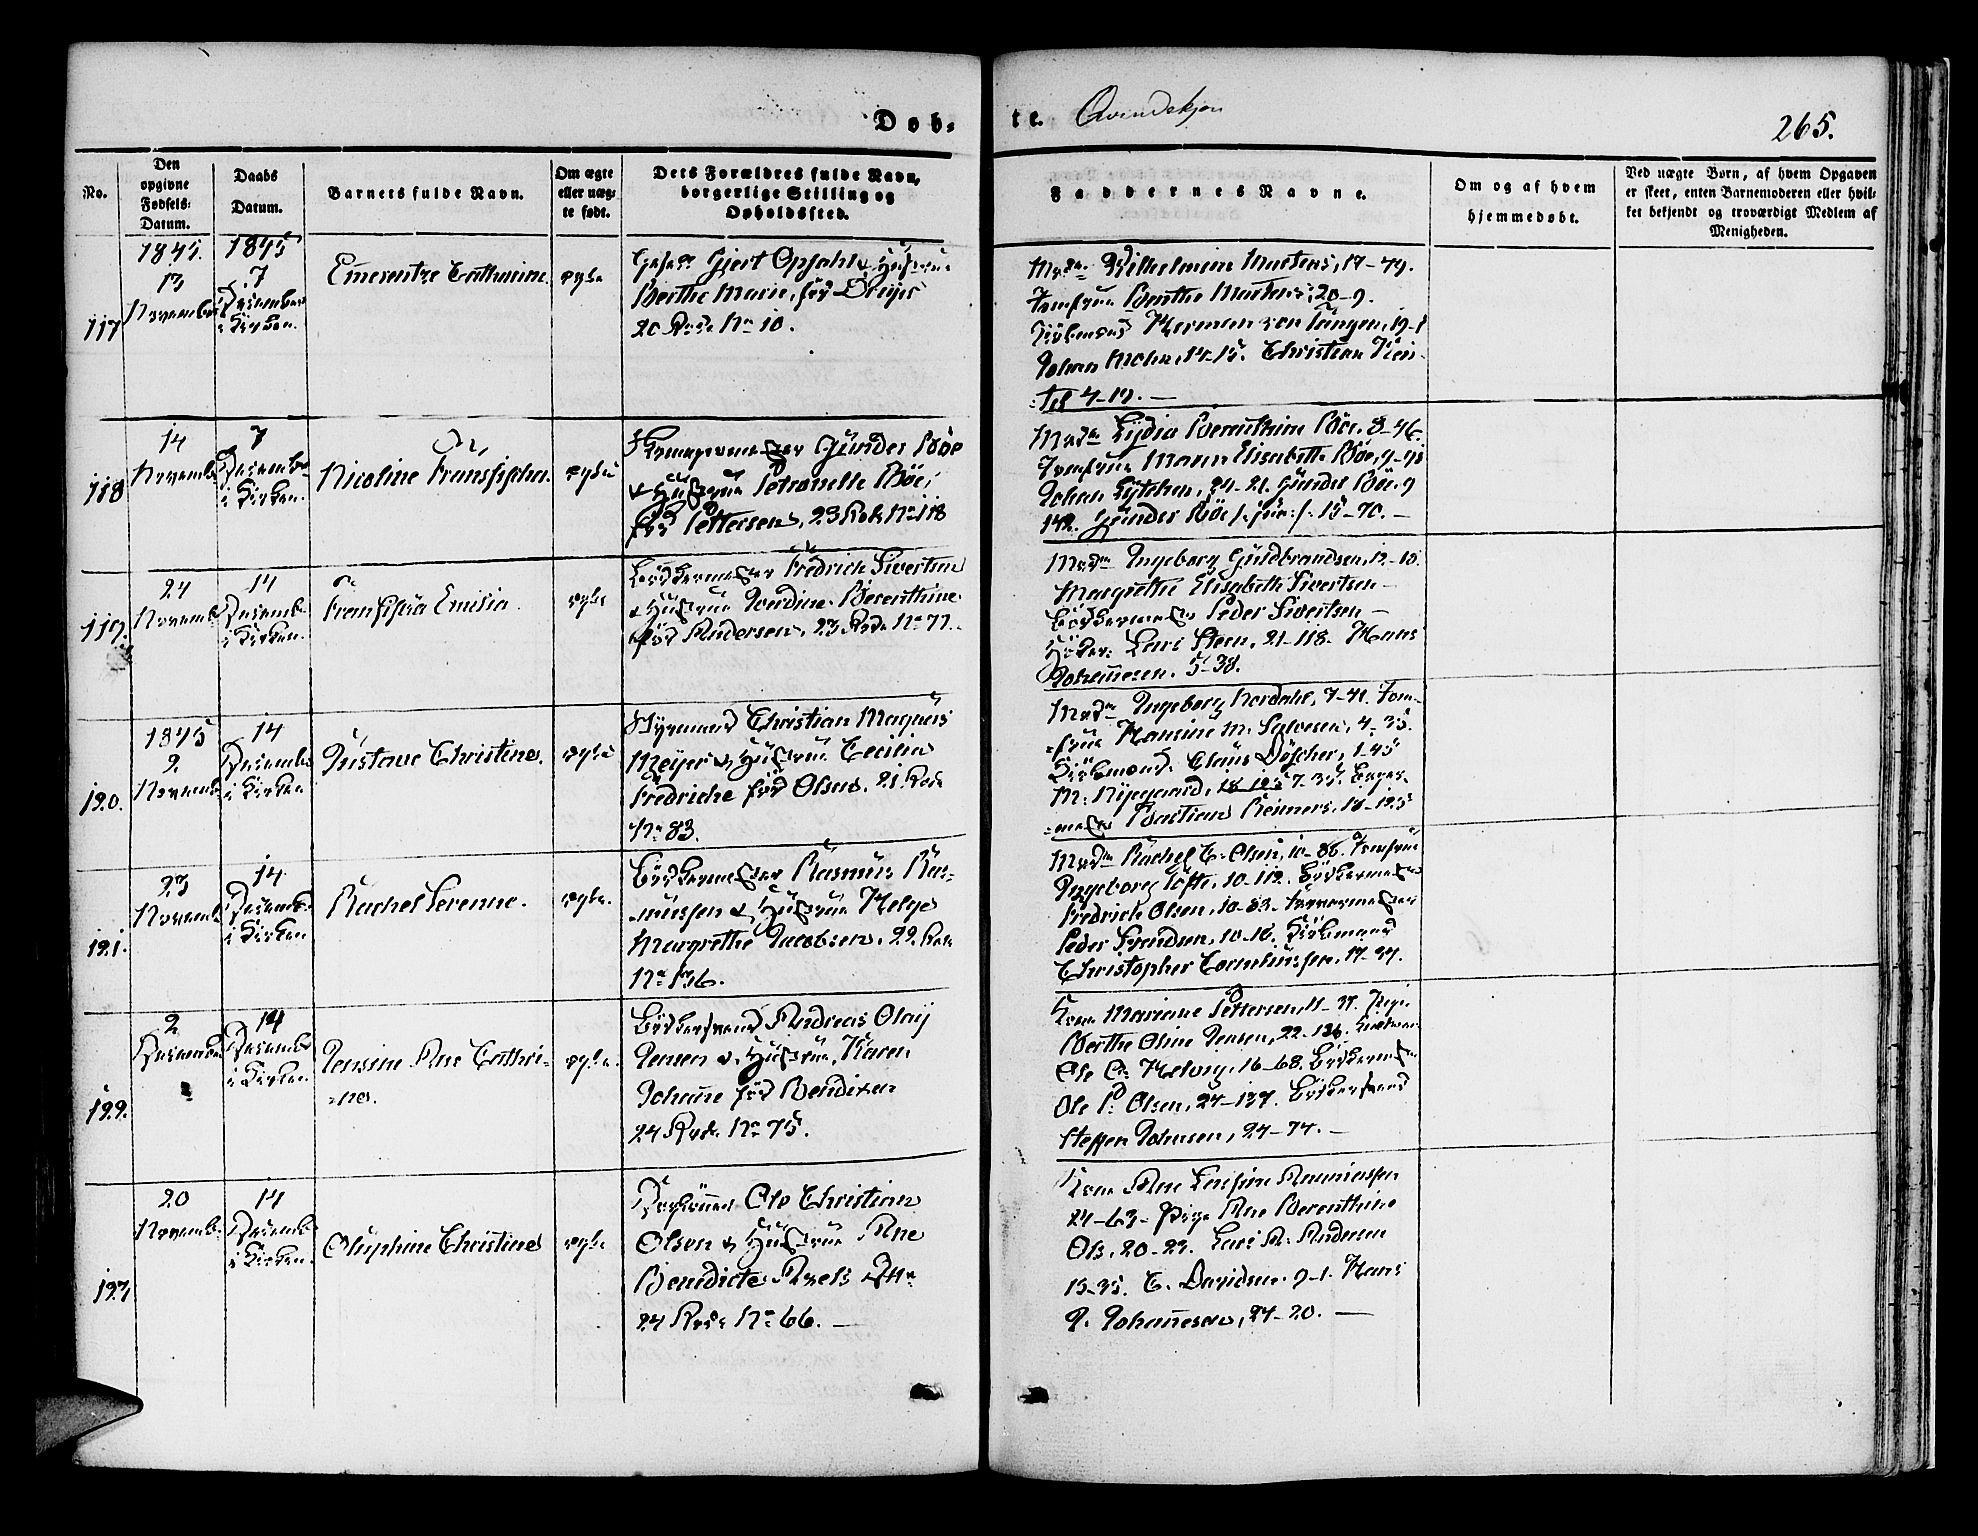 Døb-
te. Qvindekjøn
265.
No.
Den
opgivne
Fødsels-
Datum.
Daabs
Datum.
Barnets fulde Navn.
Om ægte
eller uæg-
te født.
Dets Forældres fulde Navn,
borgerlige Stilling og
Opholdssted.
Faddernes Navne.
Om og af hvem
hjemmedøbt.
Ved uægte Børn, af hvem Opgaven
er skeet, enten Barnemoderen eller hvil-
ket bekjendt og troværdigt Medlem af
Menigheden.
117
1845.
13
Novembr
1845
7
Desember
i Kirken.
Emerentze Cathrine
ægte
Gjert Opsahl & Hustrue
Berthe Marie, fød Dreyer
20 Rode No 10.
Made Wilhelmine Martens, 17-79.
Jomfrue Berthe Martens, 20-9.
Kjøbmand Herman von Tangen, 19-1
Johan Mohn, 14-15. Christian
4-17.
118
14
Novembr
7
Desembr
i Kirken.
Nicoline Fransischa.
ægte
Gunder Böe
& Hustrue Petronelle Böe,
fød Pettersen, 23 Rode No 118
Made Lydia Berenthine Böe, 8-46.
Jomfrue Maren Elisabeth Böe, 9-
Johan Lytchen, 24-21. Gunder Böe, 9
142. Gunder Böe /: jun :/ 15-70.
119.
24
Novemb
14
Desemb
i Kirken.
Fransischa Emilia.
ægte
Bødkermester Fredrich Sivertsen
& Hustrue Berenthine
fød Andersen, 23 Rode No 77.
Madm Ingeborg Guldbrandsen, 12-10.
Margrethe Elisabeth Sivertsen -
Bødkermester Peder Sivertsen -
Lars Steen, 21-118. Hans
Johannesen. 5-38.
120.
1845
2
Novemb
14
Desembr
i Kirken
Gustave Christine.
ægte
Styrmand Christian Magnus
Meyer & Hustrue Cecilia
Fredriche fød Olsen, 21 Rode
No 83.
Madm Ingeborg Nordahl, 7-41. Jom-
frue Hansine M. Salvesen, 4-35.
Kjøbmand Claus Döscher, 1-45
M: Nyegaard, 7-35.
Bastian Reimers, 18-125
121.
23
Novemb
14
Desemb
i Kirken
Rachel Serenne.
ægte.
Bødkermester Rasmus Ras-
mussen & Hustrue Helge
Margrethe Jacobsen, 22 Rode
No 136.
Madm Rachel C. Olsen, 10-88. Jomfrue
Ingeborg Tofte, 10-112. Bødkermester
Fredrich Olsen, 10-83.
Peder Svendsen, 10-16. Kjøbmand
Christopher Corneliussen, 17-27.
122.
2
Desember
14
Desembr
i Kirken
Jensine Ane Cathri-
-ne.
ægte.
Bødkersvend Andreas Olaij
Jensen & Hustrue Karen
Johanne fød Bendixen
24 Rode No 75.
Kone Mariane Pettersen, 11-37. Pige
Berthe Oline Jensen, 22-136.
Ole C. Helvig, 16-68. Bødkermester
Ole P. Olsen, 24-137. Bødkersvend
Steffen Johnsen, 24-74.
123
20
Novemb
14
Desemb
i Kirken.
Oluphine Christine
ægte
Ole Christian
Olsen & Hustrue Ane
Benedicte Axels Dttr
24 Rode No 66.
Kone Ane Rasmussen
24-63. Pige Ane Berenthine
Ols. 20-23. Lars A. Andersen
13-35. C. Davidsen 9-1. Hans
Johannesen, 24-20.